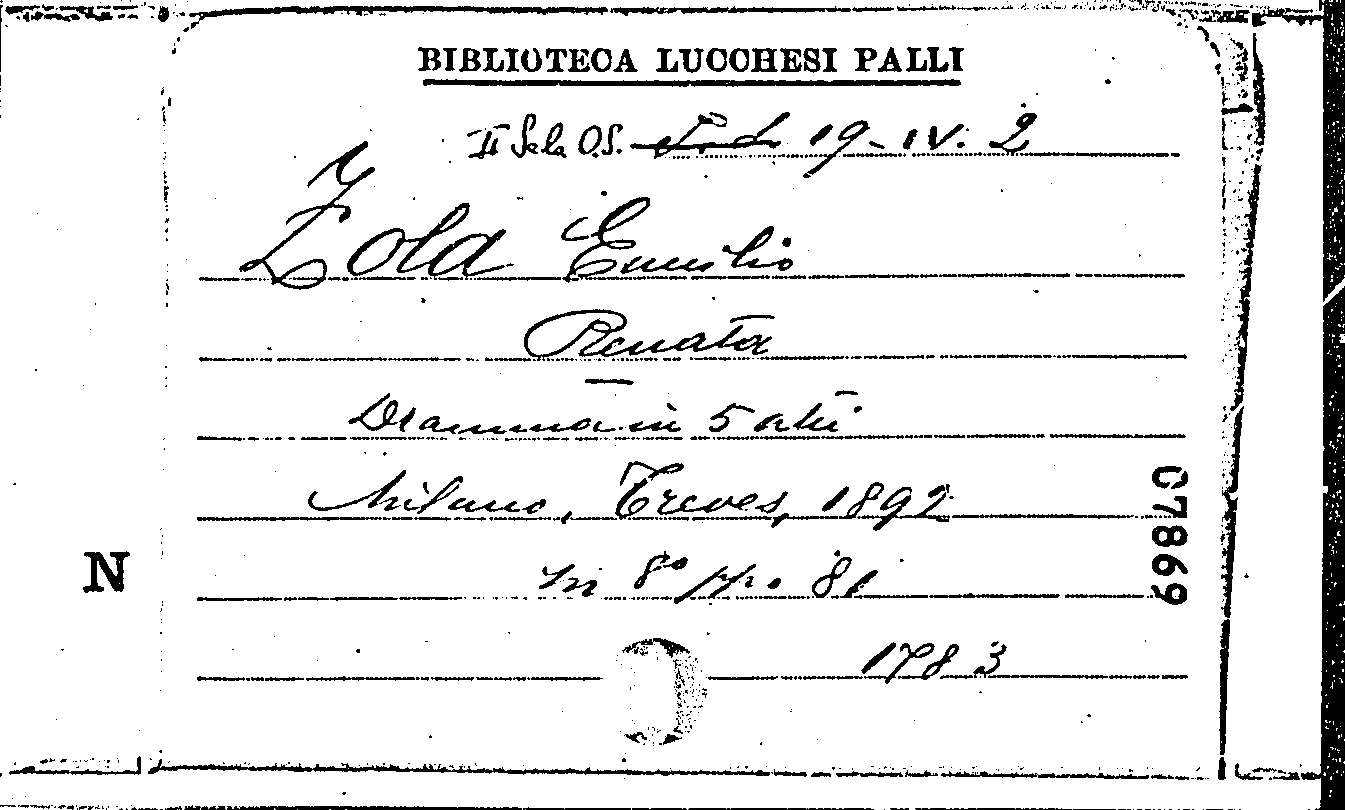 BIBLIOTECA LUCCHESI PALLI
II Sala O.S. 19-IV. 2
Zola Emilio
Renata
Dramma in 5 atti
Milano, Treves, 1892
In 8° pp. 81
1783
07869
N